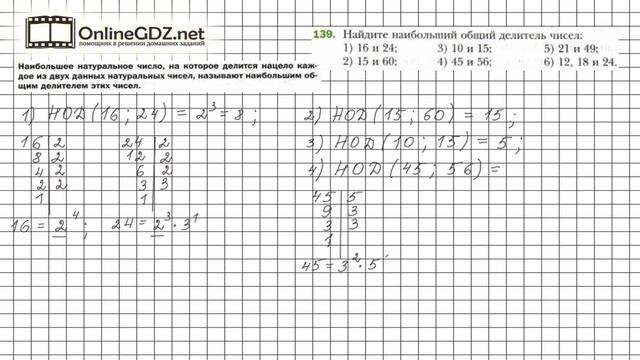 OnlineGDZ.net
помощник в решении домашних заданий
Наибольшее натуральное число, на которое делится нацело каж-
дое из двух данных натуральных чисел, называют наибольшим об-
щим делителем этих чисел.
139. Найдите наибольший общий делитель чисел:
1) 16 и 24; 3) 10 и 15; 5) 21 и 49;
2) 15 и 60; 4) 45 и 56; 6) 12, 18 и 24.
1) НОД (16 ; 24) = 2³ = 8 ;
16 | 2 24 | 2
8 | 2 12 | 2
4 | 2 6 | 2
2 | 2 3 | 3
1 | 1 |
16 = 2⁴ ; 24 = 2³ · 3¹
2) НОД (15 ; 60) = 15 ;
3) НОД (10 ; 15) = 5 ;
4) НОД (45 ; 56) =
45 | 5
9 | 3
3 | 3
1 |
45 = 3² · 5¹